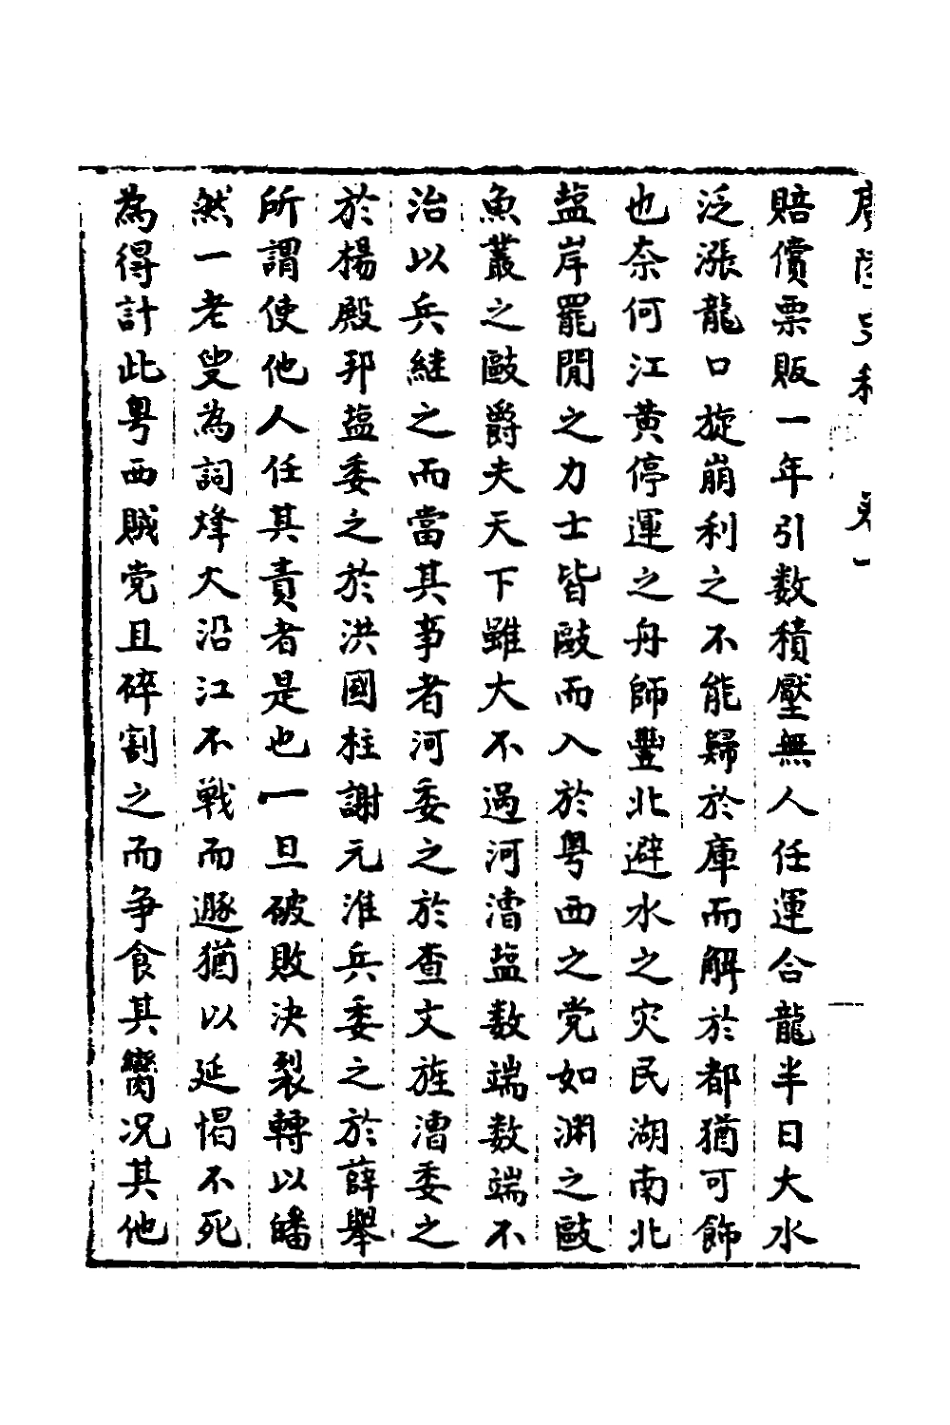 賠償票販一年引数積壓無人任運合龍半日大水
泛漲龍口旋崩利之不能歸於庫而解於都猶可飾
也奈何江黄停運之舟師豐北避水之灾民湖南北
䀋岸罷閒之力士皆敺而入於粤西之党如渊之敺
魚叢之敺爵夫天下雖大不過河漕䀋数端数端不
治以兵継之而當其事者河委之於查文旌漕委之
於楊殿邦䀋委之於洪國柱謝元淮兵委之於薛舉
所謂使他人任其責者是也一旦破敗决裂轉以皤
然一老叟為詞烽火沿江不戦而遯猶以延惕不死
為得計此粤西賊党且碎割之而争食其臠况其他